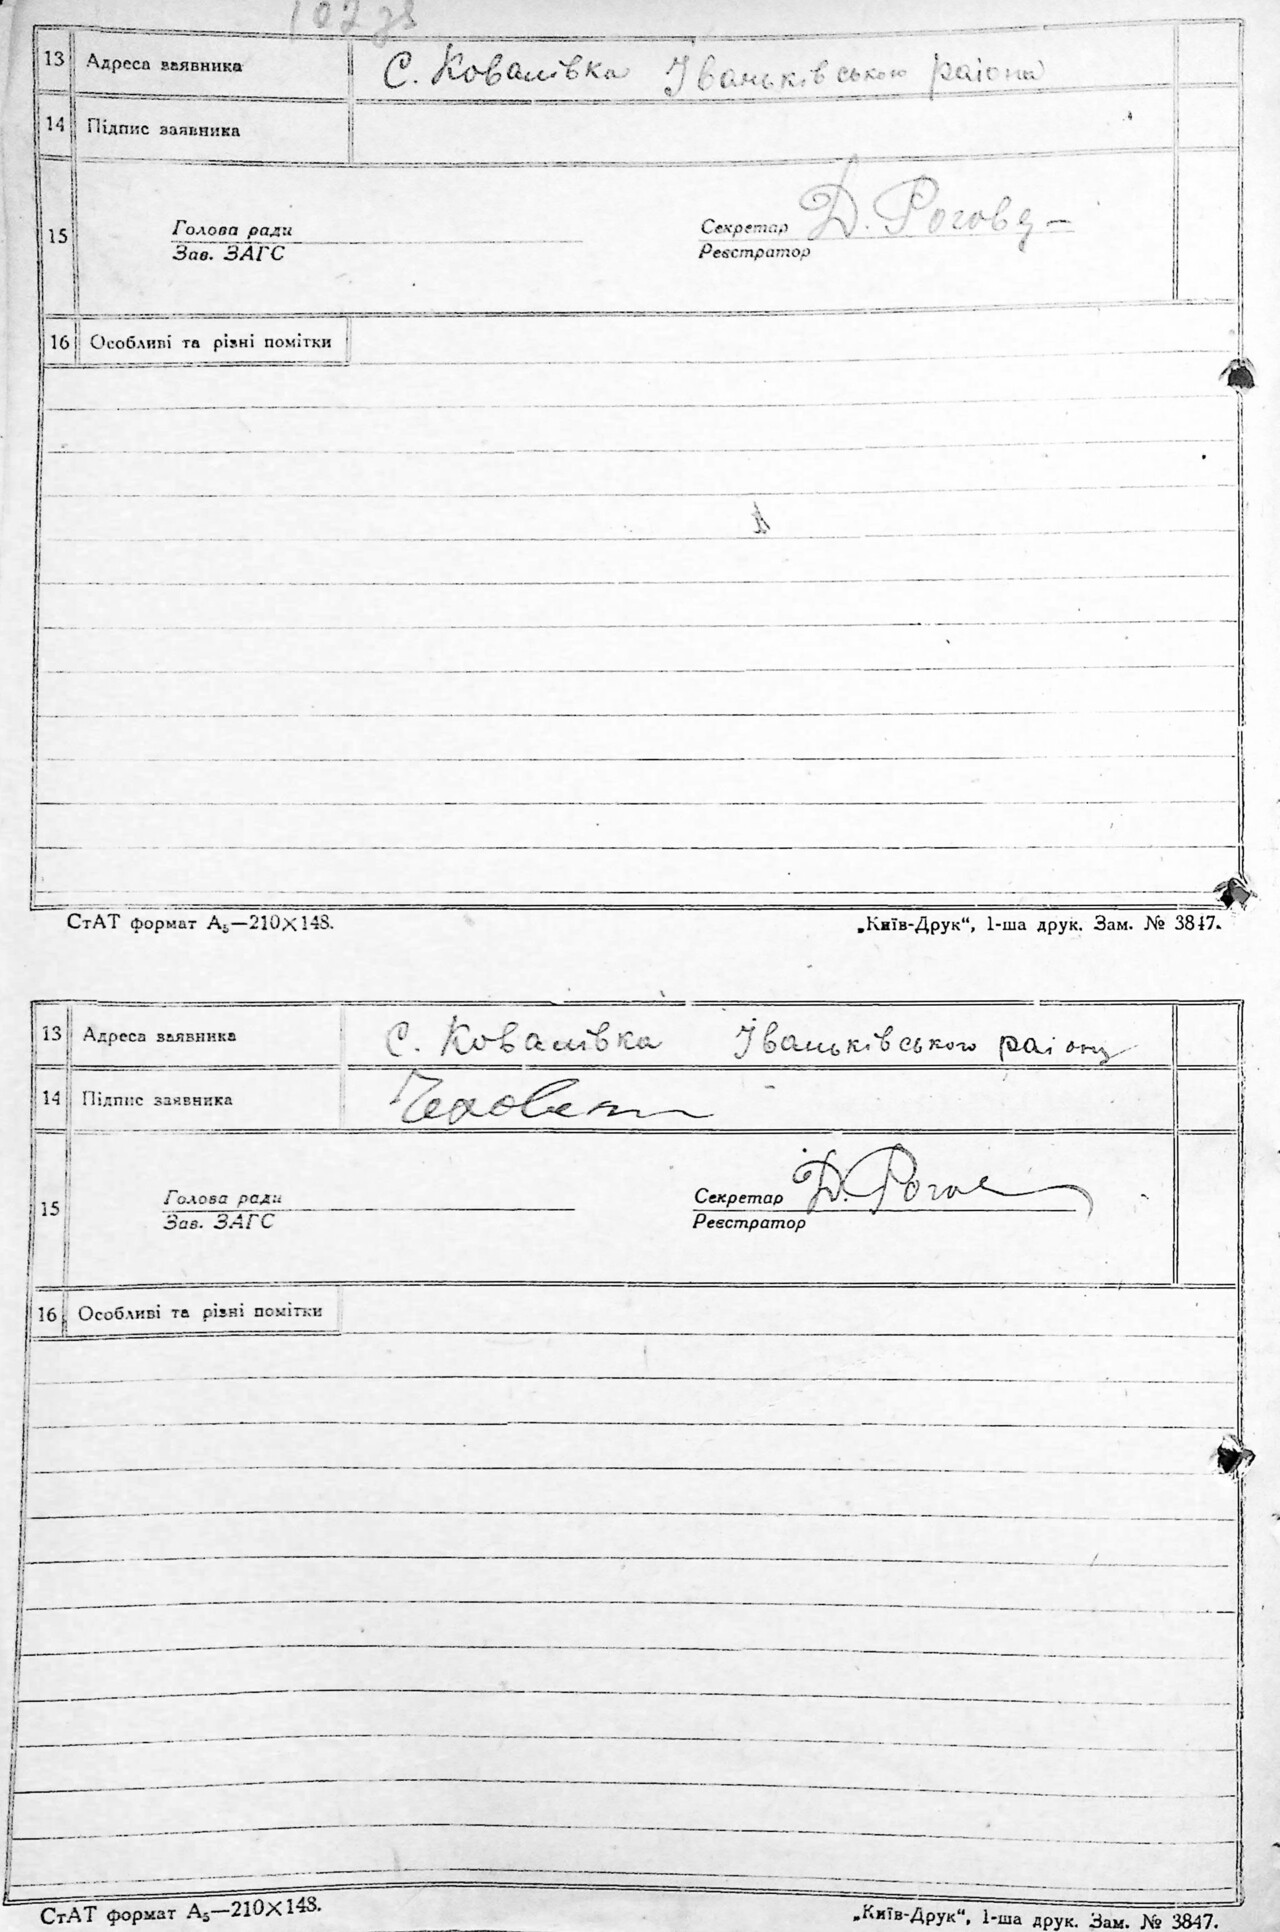 107 зв
13 Адреса заявника С. Ковалівка Іваньківського раіона
14 Підпис заявника
15 Голова ради Секретар Д. Рогове
Зав. ЗАГС Реєстратор
16 Особливі та різні помітки
СтАТ формат А₅—210×148. „Київ-Друк“, 1-ша друк. Зам. № 3847.
13 Адреса заявника С. Ковалівка Іваньківського раіону
14 Підпис заявника
15 Голова ради Секретар Д. Рогов
Зав. ЗАГС Реєстратор
16 Особливі та різні помітки
СтАТ формат А₅—210×148. „Київ-Друк“, 1-ша друк. Зам. № 3847.